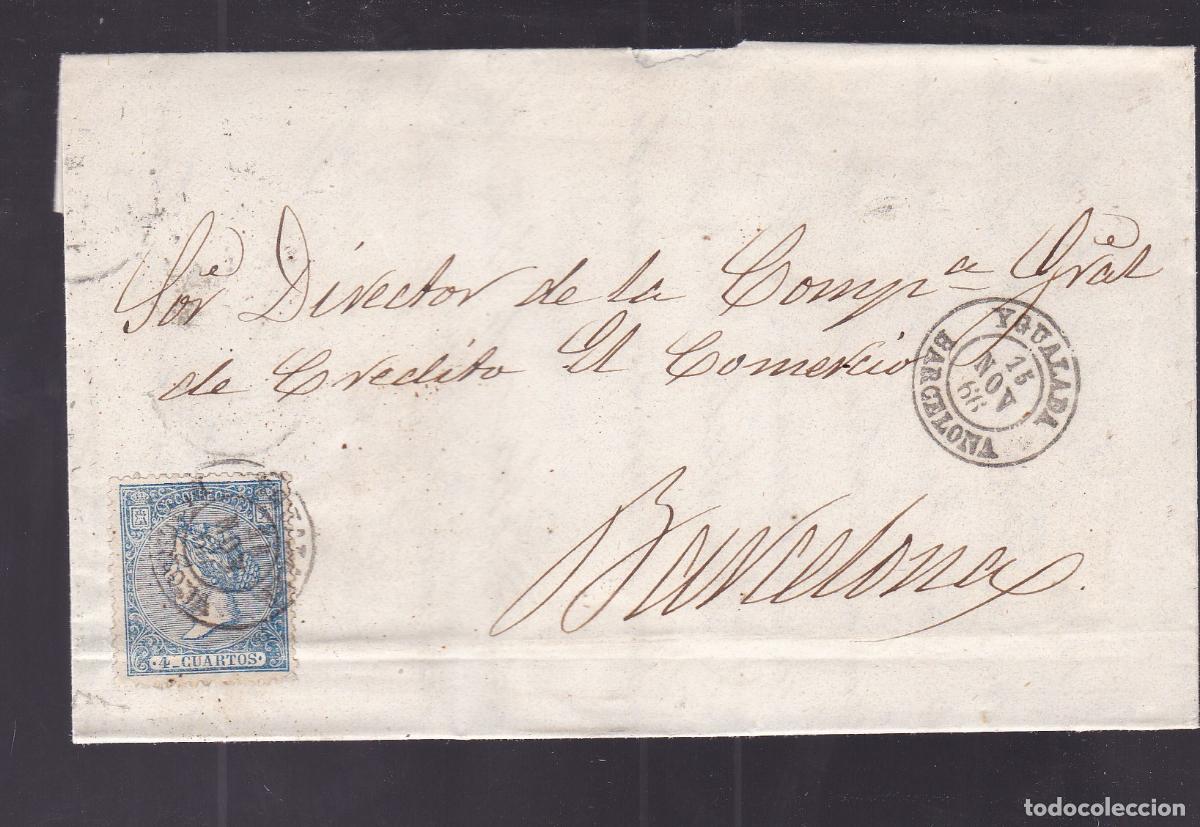 Sor Director de la Compª Gral
de Credito El Comercio
YGUALADA
BARCELONA
15
NOV
66
Barcelona.
CORREOS
4 CUARTOS
todocoleccion